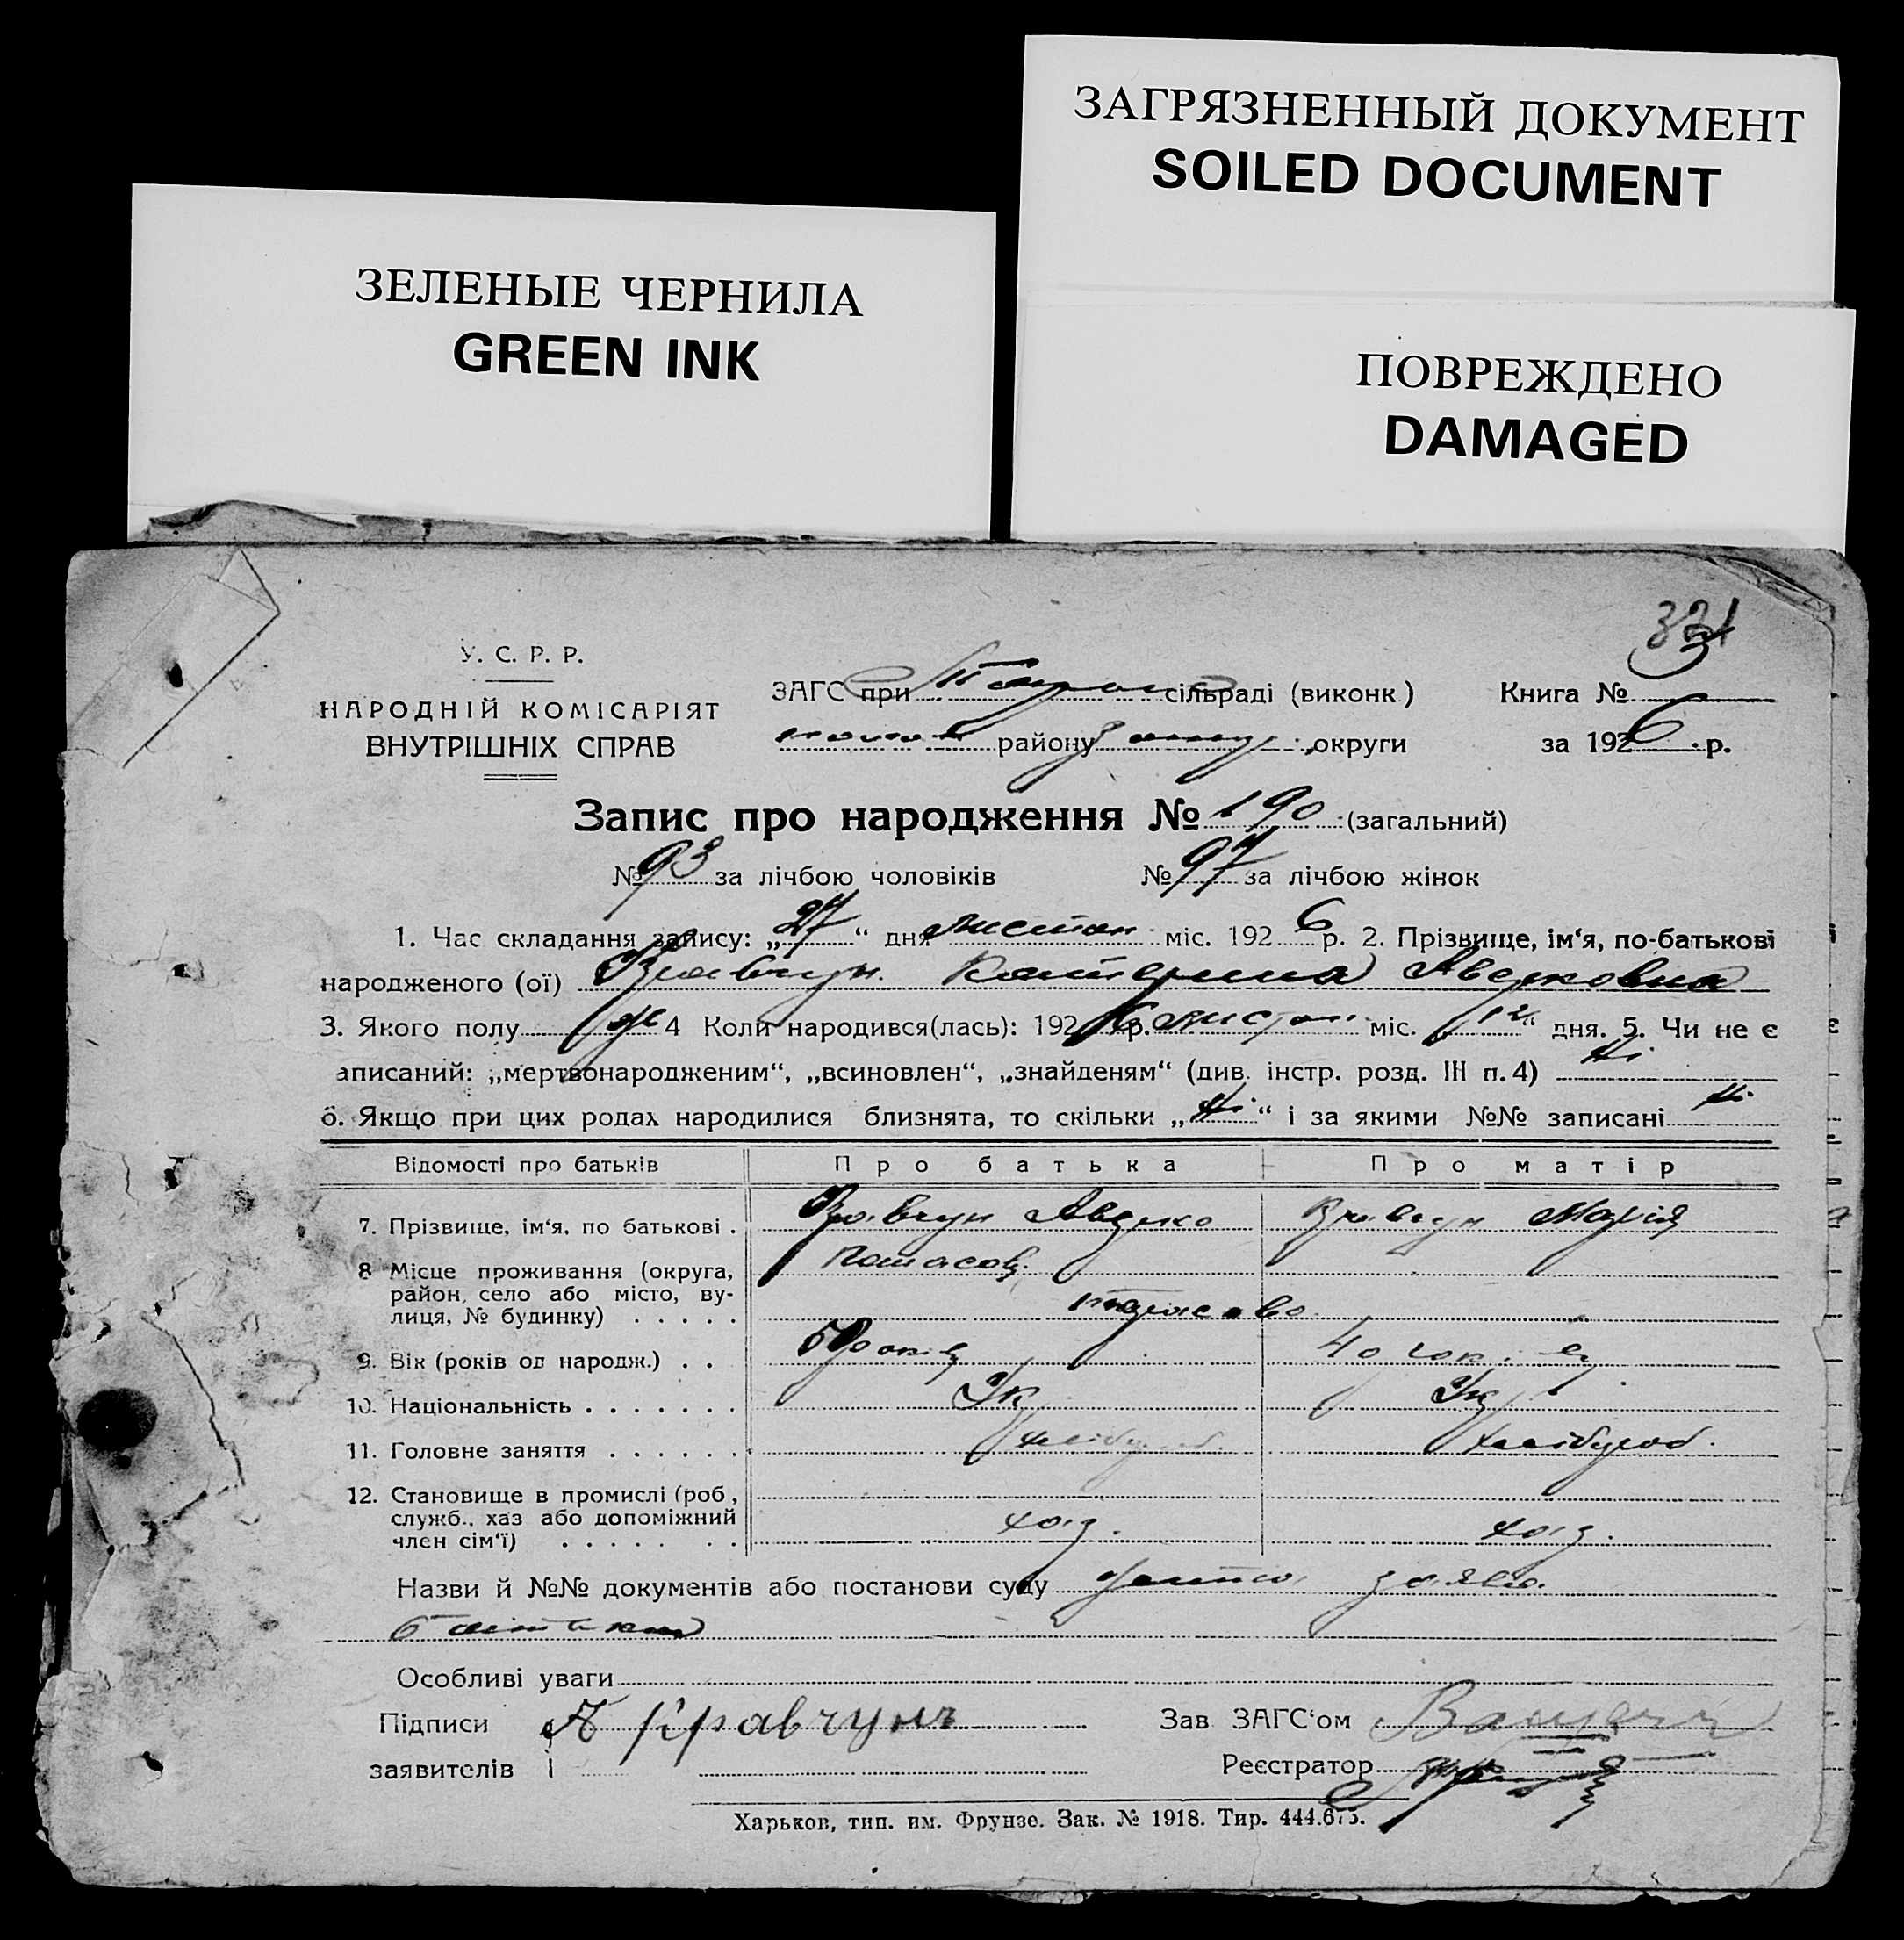 ЗАГРЯЗНЕННЫЙ ДОКУМЕНТ
SOILED DOCUMENT
ЗЕЛЕНЫЕ ЧЕРНИЛА
GREEN INK
ПОВРЕЖДЕНО
DAMAGED
У. С. Р. Р.
НАРОДНІЙ КОМІСАРІЯТ
ВНУТРІШНІХ СПРАВ
ЗАГС при сільраді (виконк) Книга №
району округи за 1926 р.
Запис про народження № 190 (загальний)
№ 93 за лічбою чоловіків № 97 за лічбою жінок
1. Час складання запису: „27“ дня листоп міс. 1926 р. 2. Прізвище, ім‘я, по-батькові
народженого (ої) Кравчун Катерина
3. Якого полу ж 4 Коли народився(лась): 1926 р. листоп міс. 12“ дня. 5. Чи не є
аписаний: „мертвонародженим“, „всиновлен“, „знайденям“ (див. інстр. розд. III п. 4) Ні
6. Якщо при цих родах народилися близнята, то скільки „Ні“ і за якими №№ записані Ні
Відомості про батьків Про батька Про матір
7. Прізвище, ім‘я, по батькові . Кравчун Кравчун Марія
8 Місце проживання (округа,
район, село або місто, ву-
лиця, № будинку) . . . . .
9. Вік (років од народж.) . . 40
10. Національність . . . . . . . Ук Ук
11. Головне заняття . . . . . . хлібороб. хлібороб.
12. Становище в промислі (роб,
служб., хаз або допоміжний
член сім‘ї) . . . . . . . хаз. хаз.
Назви й №№ документів або постанови суду заява
Особливі уваги
Підписи А Кравчунъ Зав ЗАГС‘ом
заявителів і Реєстратор
Харьков, тип. им. Фрунзе. Зак. № 1918. Тир. 444.675.